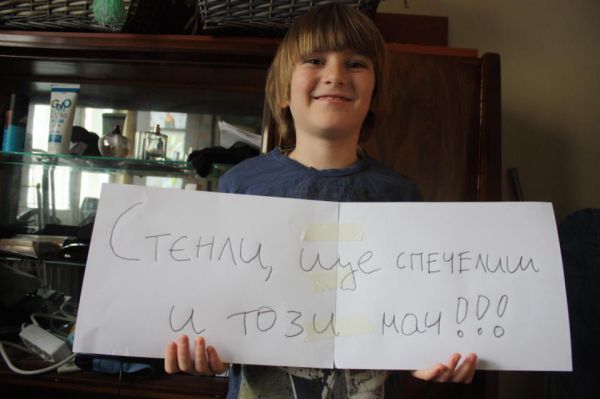 Стенли, ще спечелиш
и този мач!!!